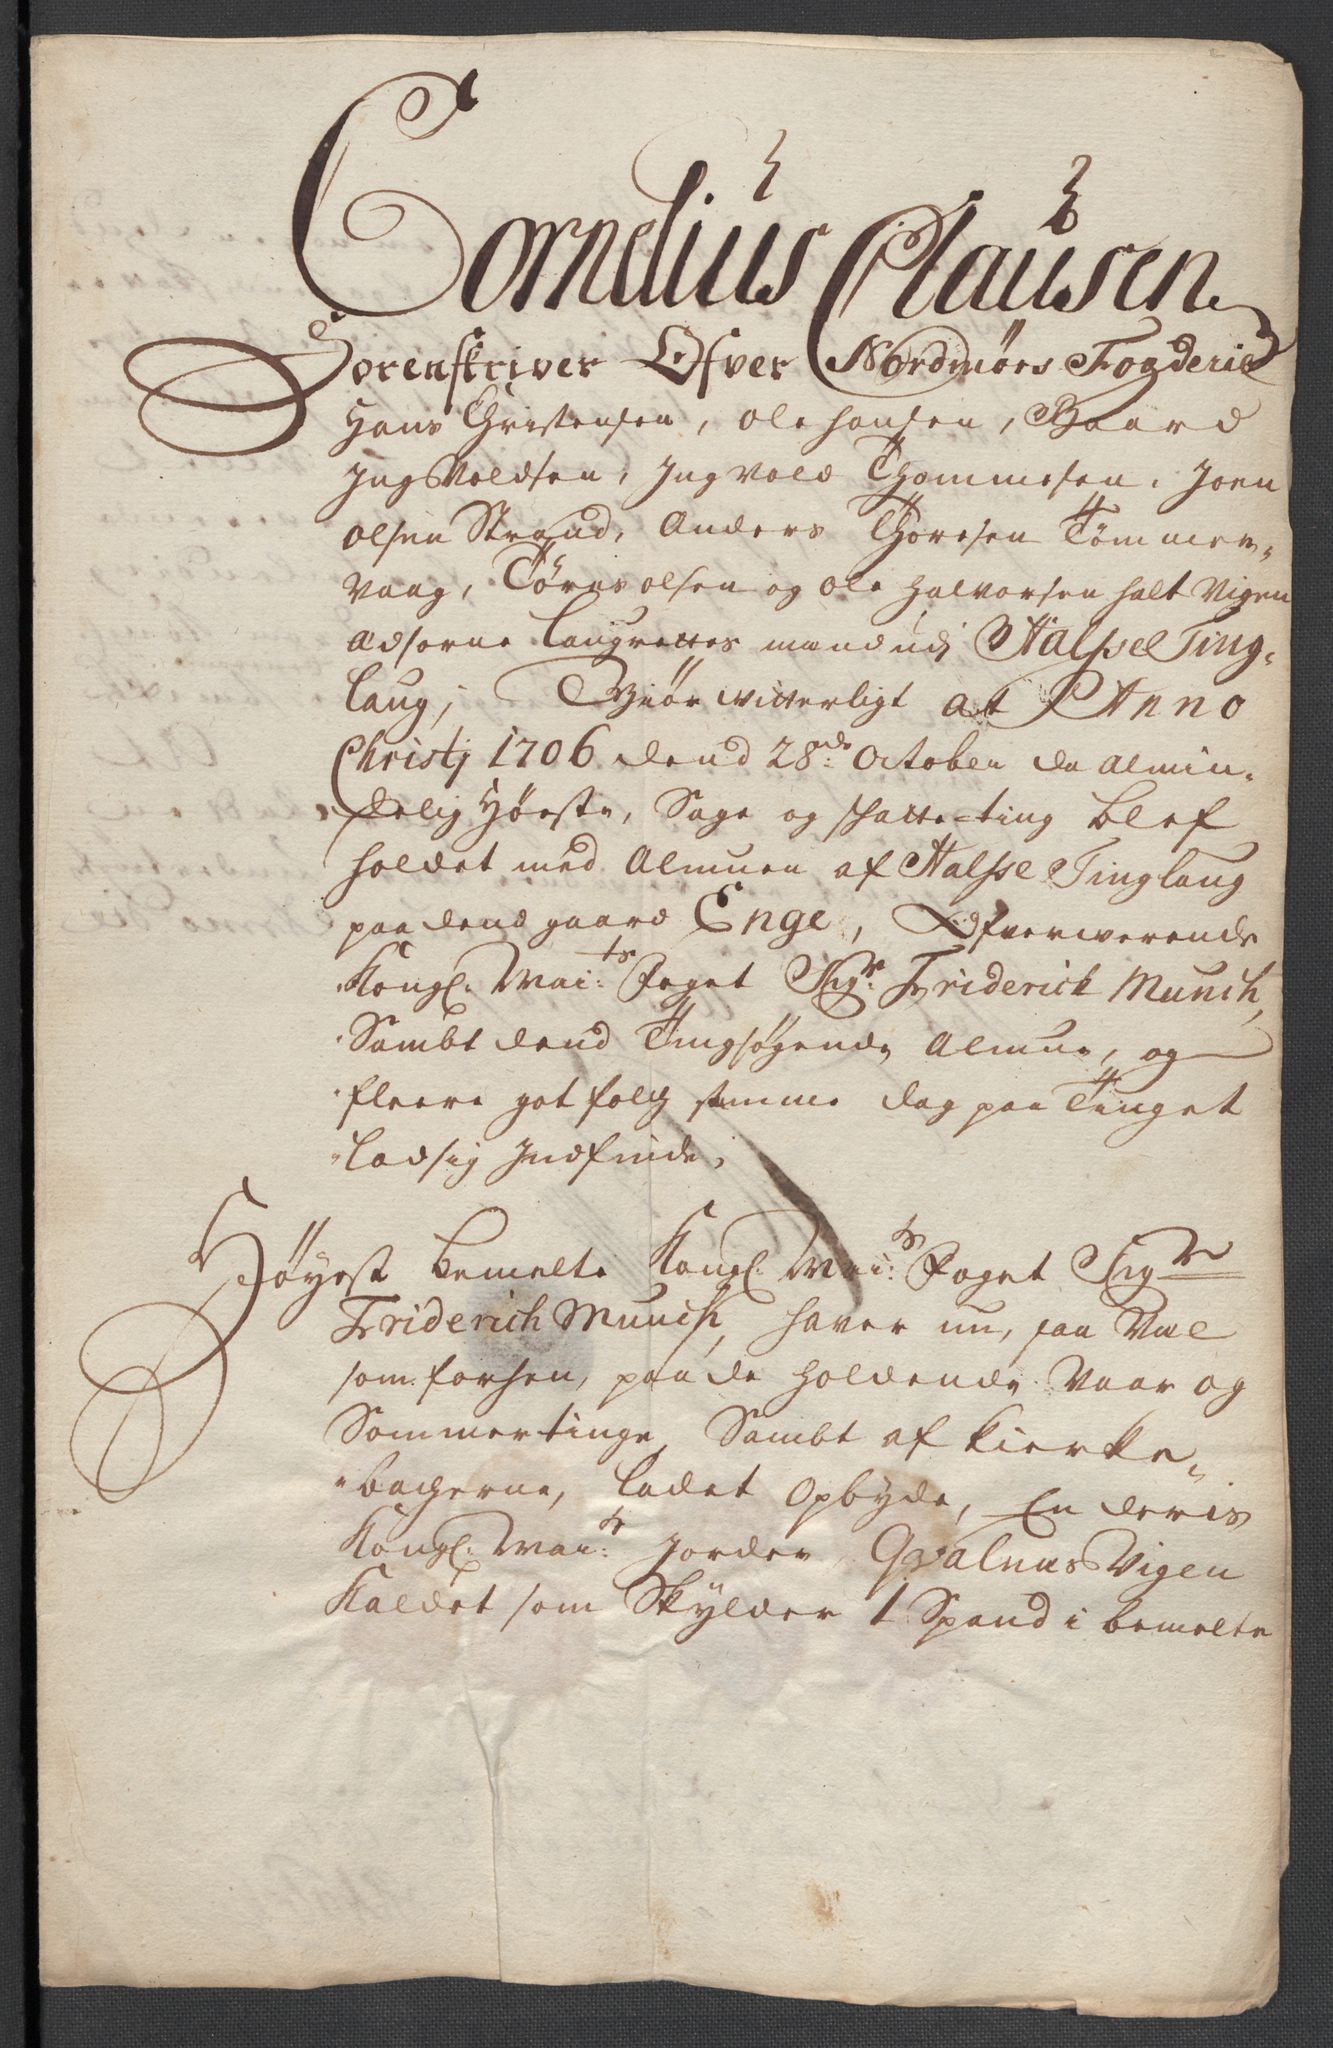 Cornelius Clausen
Sorenskriver Ofver Nordmørs Fogderie
Hans Christensen, Ole Hansen, Baard
Ingvoldsen, Ingvold Thommesen, Joen
Olsen Strand, Anders Thoresen Tømmer-
vaag, Tøres Olsen og Ole Halvorsen Halt Vigen
Edsorne Laugrettes mænd udj Halsse Ting-
laug, Giør witterligt at Anno
Christj 1706 dend 28de October da almin-
delig Høste, Sage og Schatte-ting blef
holdet med Almuen af Halsse Tinglaug
paa dend gaard Enge, Ofverwerende
Kongl. Mai:ts Foget Sigr. Friderich Munch,
Sambt dend Tingsøgende Almue, og
fleere got folch samme dag paa Tinget
lod sig Indfinde,
Høyest bemelte Kongl. Mai:ts Foget Sigr
Friderich Munch, haver nu, saa vel
som forhen, paa de holdende Vaar og
Sommertinge, Sambt af Kierke-
bacherne, ladet Opbyde, En deris
Kongl. Mai:ts Jorder, Qvalnæs Vigen
Kaldet som Skylder 1 Spand i bemelte